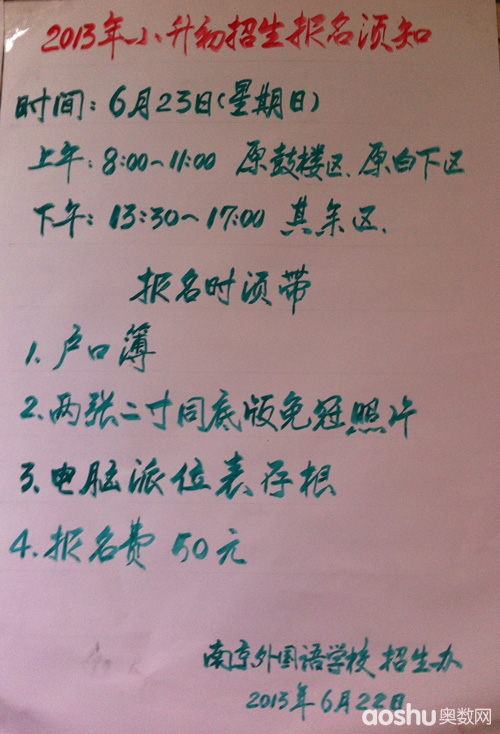 2013年小升初招生报名须知
时间：6月23日(星期日)
上午：8:00~11:00 原鼓楼区、原白下区
下午：13:30~17:00 其余区.
报名时须带
1. 户口簿
2. 两张二寸同底版免冠照片
3. 电脑派位表存根
4. 报名费 50元
南京外国语学校 招生办
2013年6月22日
aoshu奥数网